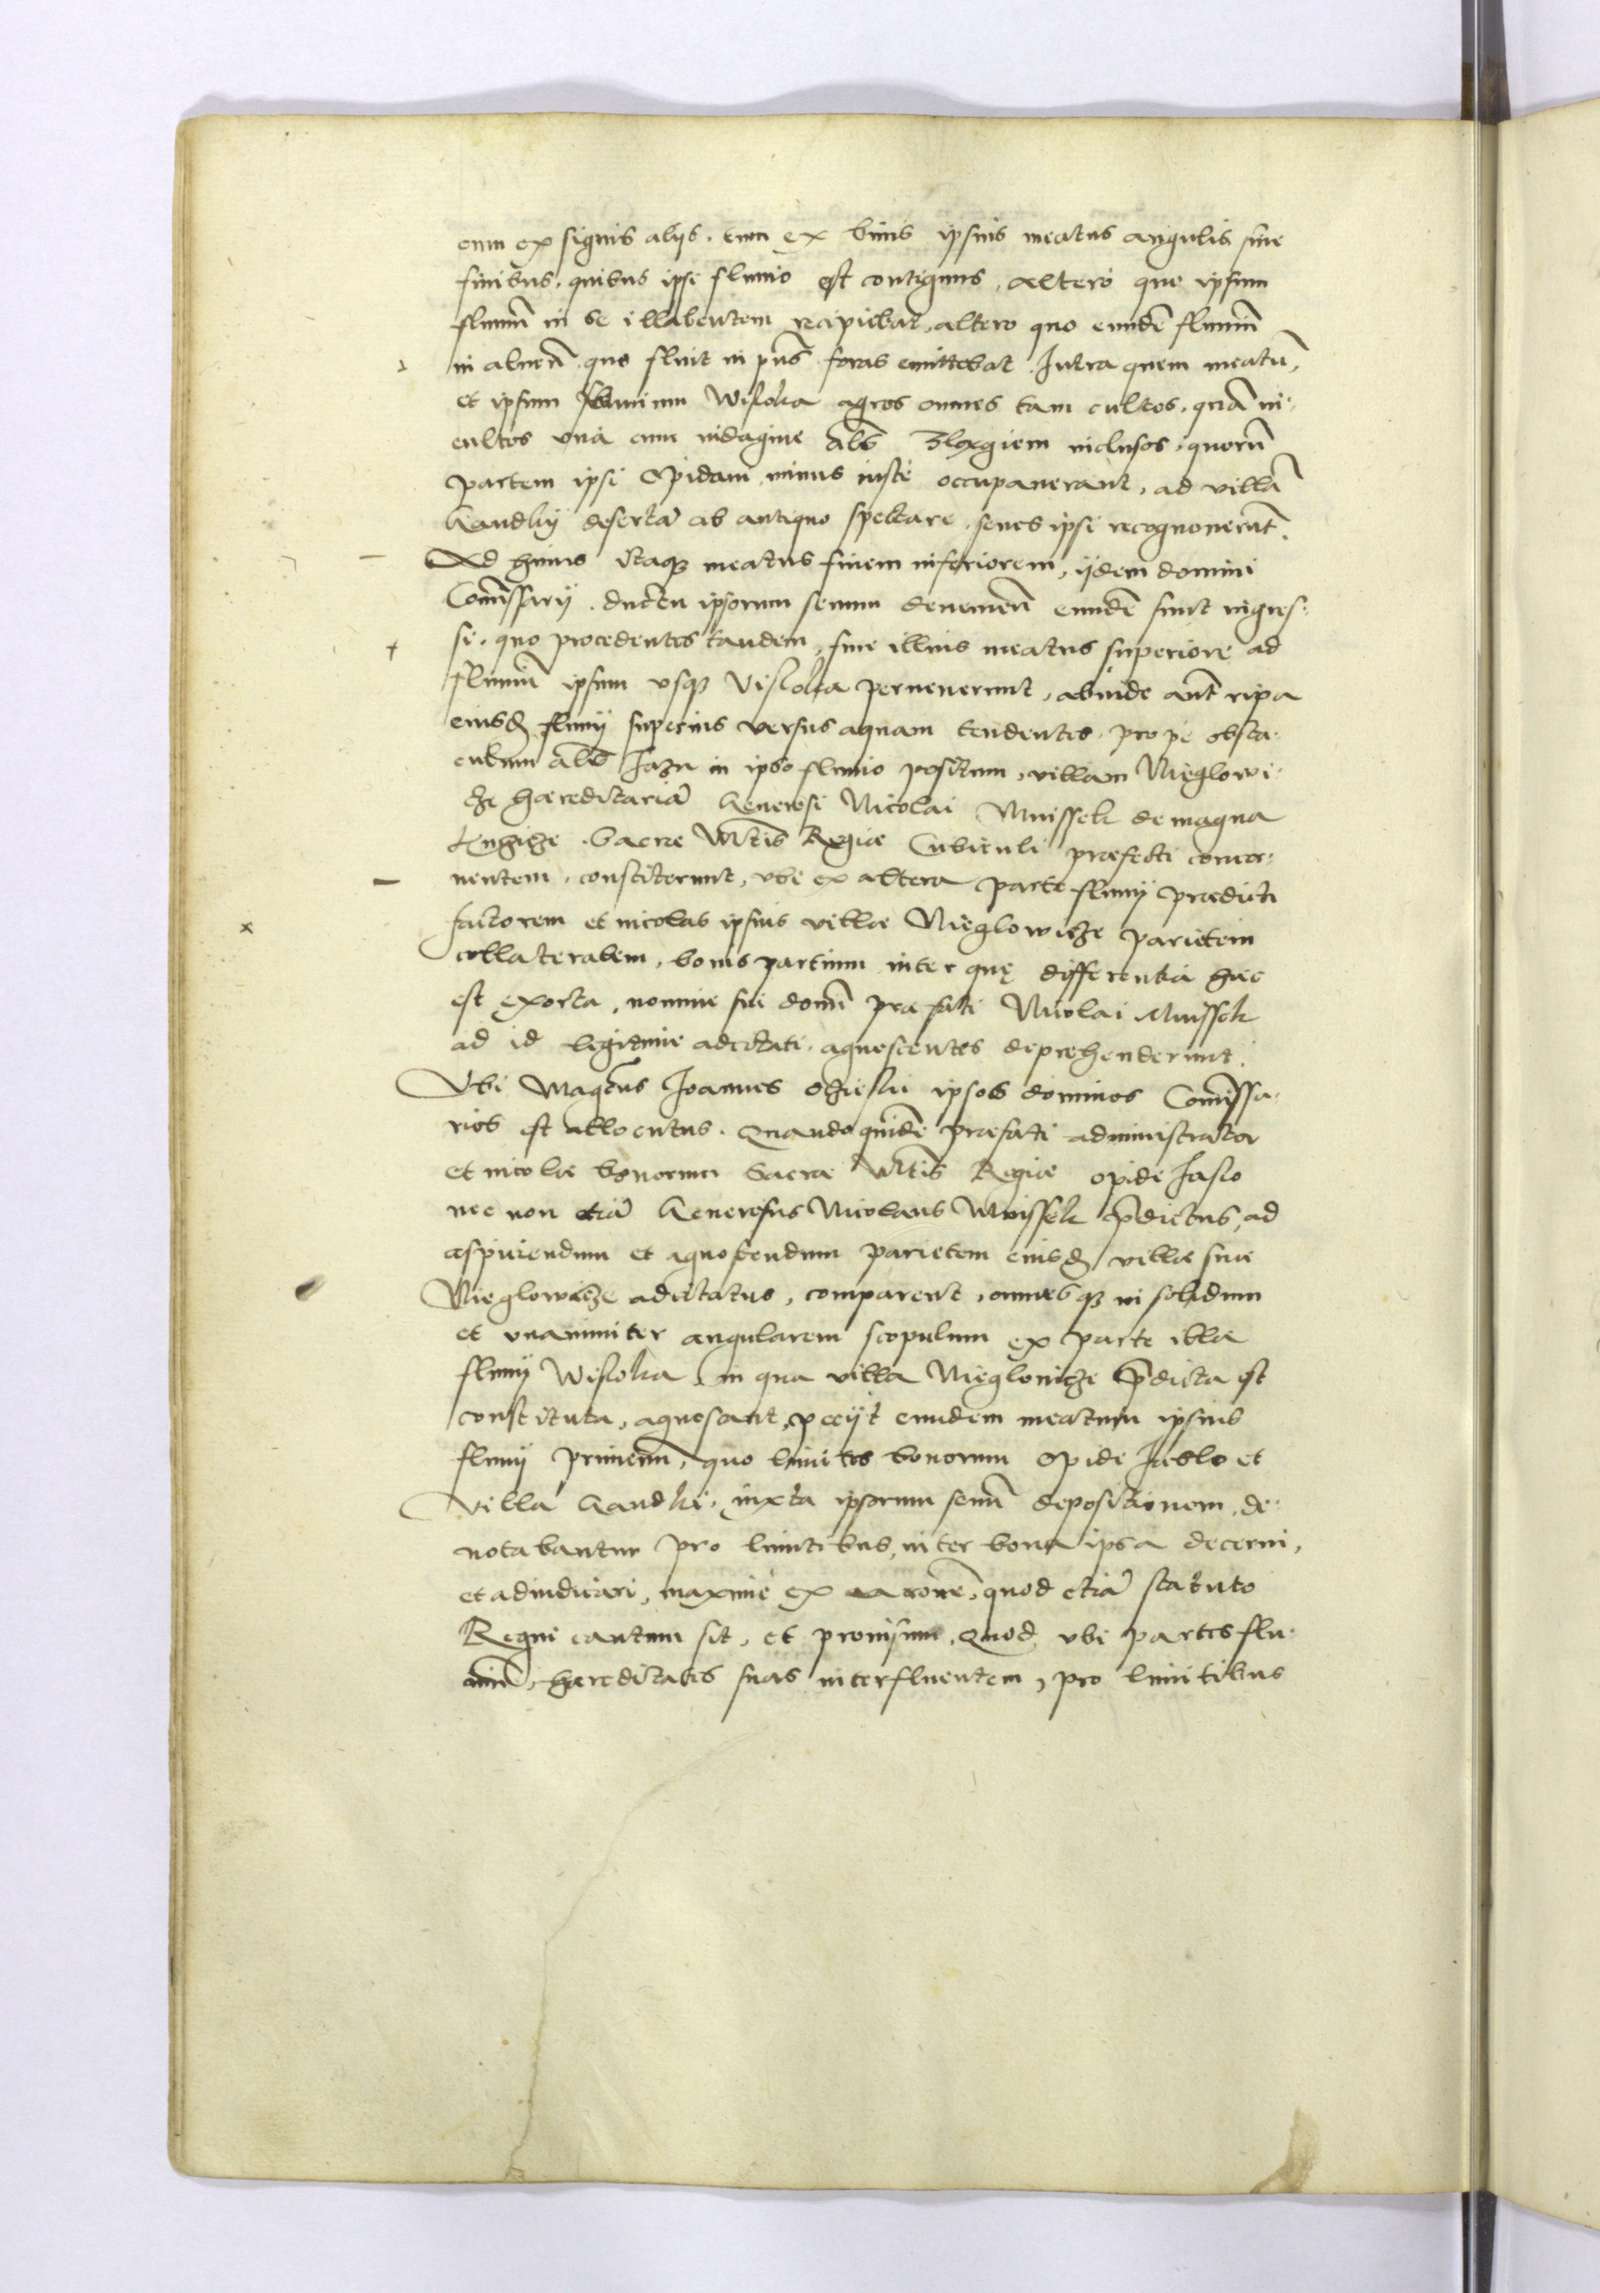 cum ex signis alijs, tum ex binis ipsius meatus angulis siue
finibus, quibus ipse fluuio est contiguus, altero quo ipsum
fluuiũ in se illabentem recipiebat, altero quo eundẽ fluuiũ
in alueũ quo fluit in pñs foras emittebat. Intra quem meatũ,
et ipsum fluuium Wisloka agros omnes tam cultos, quã in-
cultos vna cum indagine als inclusos, quorũ
partem ipsi Opidani minus iuste occupauerant, ad villã
Gandky desertã ab antiquo spectare, senes ipsi recognouerũt.
Ad huius itaqʒ meatus finem inferiorem, ijdem domini
Comissarij, ductu ipsorum senum deuenerũ eundẽ sunt ingres-
si, quo procedentes tandem, fine illius meatus superiore ad
fluuiũ ipsum vsqʒ Visloka peruenerunt, abinde aũt ripa
eiusd fluuij superius versus aquam tendentes, prope obsta-
culum als Jazu in ipso fluuio positum, villam Nieglowi-
cze hæreditariã Generosi Nicolai Mnisseh de magna
Kuchicze Sacræ Mtis Regiæ Cubiculi præfecti concer-
nentem, constiterunt, vbi ex altera parte fluuij prædicti
factorem et incolas ipsius villæ Nieglowicze parietem
collateralem, bonis partium inter quę differentia hæc
est exorta, nomine sui domĩ præfati Nicolai Mnisseh
ad id legitime adcitati, agnoscentes deprehenderunt.
Vbi Magcus Joannes Oczieski ipsos dominos Comissa-
rios est allocutus. Quandoquidẽ præfati administrator
et incolæ bonorum Sacræ Mtis Regiæ opidi Jaslo
nec non etiã Generosus Nicolaus Mnisseh p̃dictus, ad
aspiciendum et agnoscendum parietem eiusd villæ suæ
Nieglowicze adcitatus, comparent, omnesqʒ in solidum
et vnanimiter angularem scopulum ex parte illa
fluuij Wisloka, in qua villa Nieglowicze p̃dicta est
constituta, agnoscant, petijt eundem meatum ipsius
fluuij primeuũ, quo limites bonorum opidi Jaslo et
villa Gandki, iuxta ipsorum senũ depositionem, de-
notabantur pro limitibus, inter bona ipsa decerni,
et adiudicari, maxime ex ea rone, quod etiã statuto
Regni cautum sit, et prouisum, Quod vbi partes flu-
uiũ, hæreditates suas interfluentem, pro limitibus